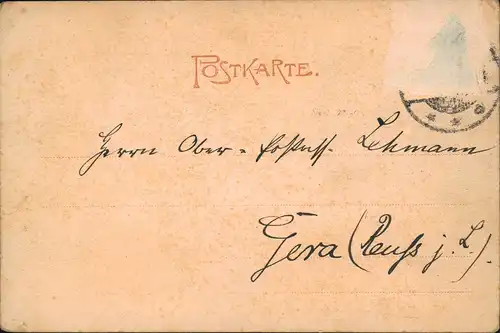 POSTKARTE.
Herrn Ober-Postass. Lehmann
Gera (Reuß j. L.).